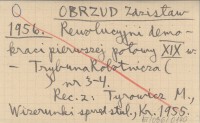 O OBRZUD Zdzisław
1956. Rewolucyjni demo-
kraci pierwszej połowy XIX w.
- Trybuna Robotnicza (
) nr 3-4.
Rec. z: Tyrowicz M.,
Wizerunki sprzed stu l., Kr. 1955.